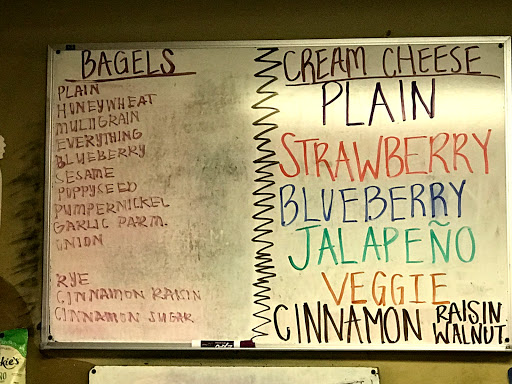 BAGELS
PLAIN
HONEYWHEAT
MULTIGRAIN
EVERYTHING
BLUEBERRY
SESAME
POPPYSEED
PUMPERNICKEL
GARLIC PARM.
ONION
RYE
CINNAMON RAISIN
CINNAMON SUGAR
CREAM CHEESE
PLAIN
STRAWBERRY
BLUEBERRY
JALAPEÑO
VEGGIE
CINNAMON RAISIN
WALNUT